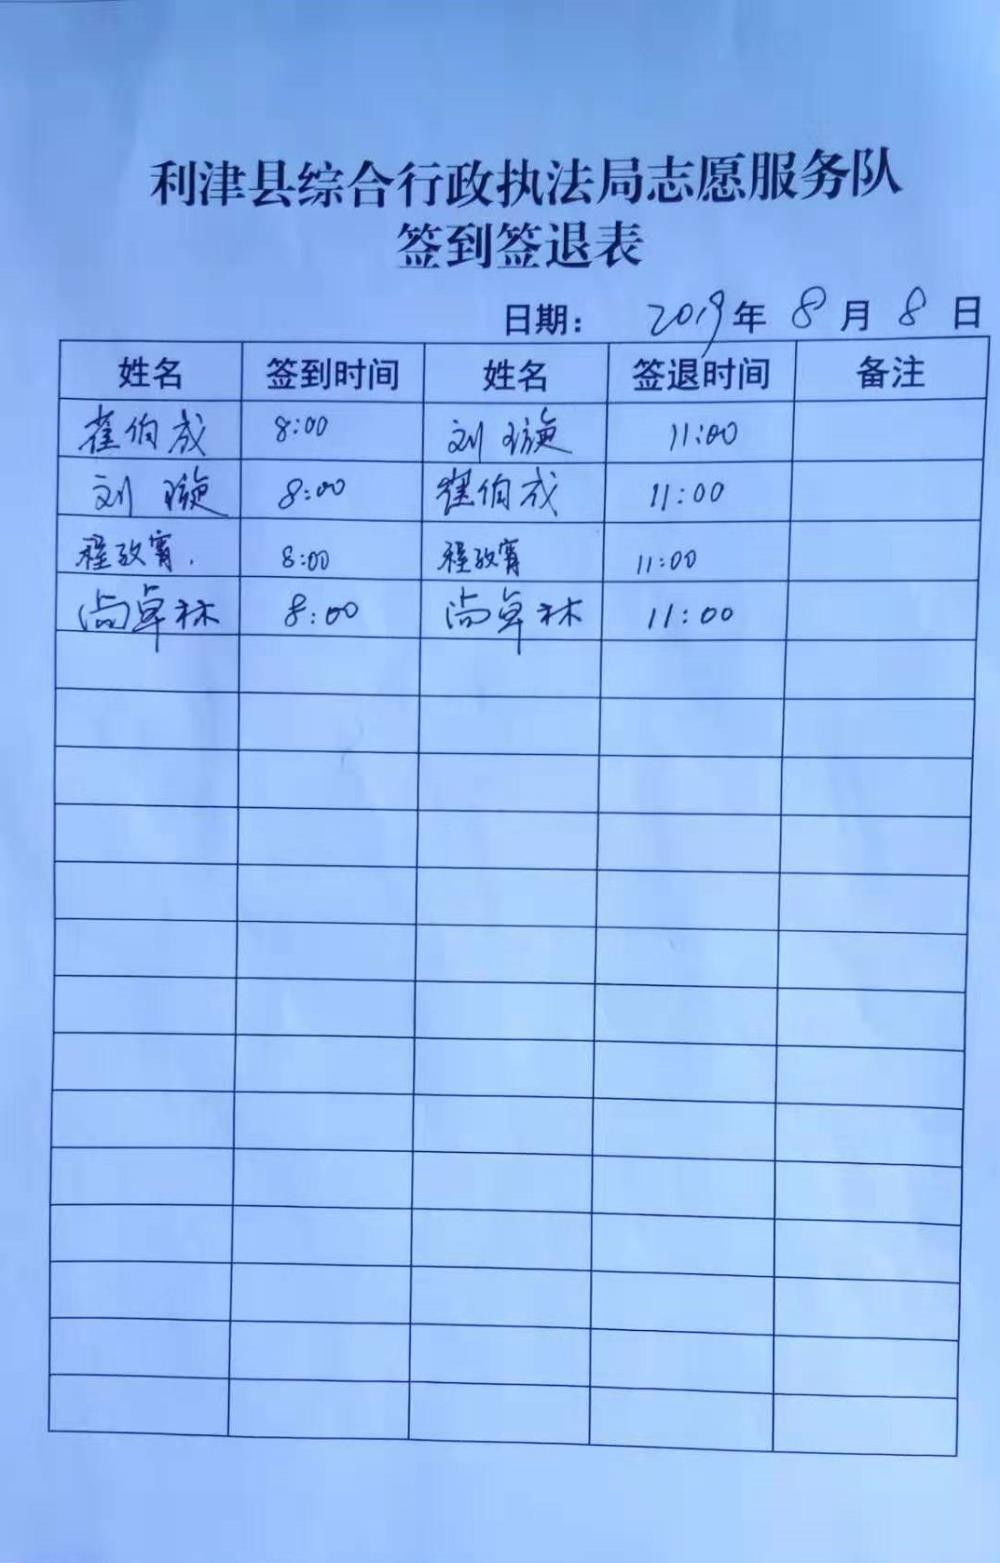 利津县综合行政执法局志愿服务队
签到签退表
日期： 2019年 8 月 8 日
姓名 签到时间 姓名 签退时间 备注
崔伯成 8:00 刘璇 11:00
刘璇 8:00 崔伯成 11:00
程致霄. 8:00 程致霄 11:00
尚卓林 8:00 尚卓林 11:00